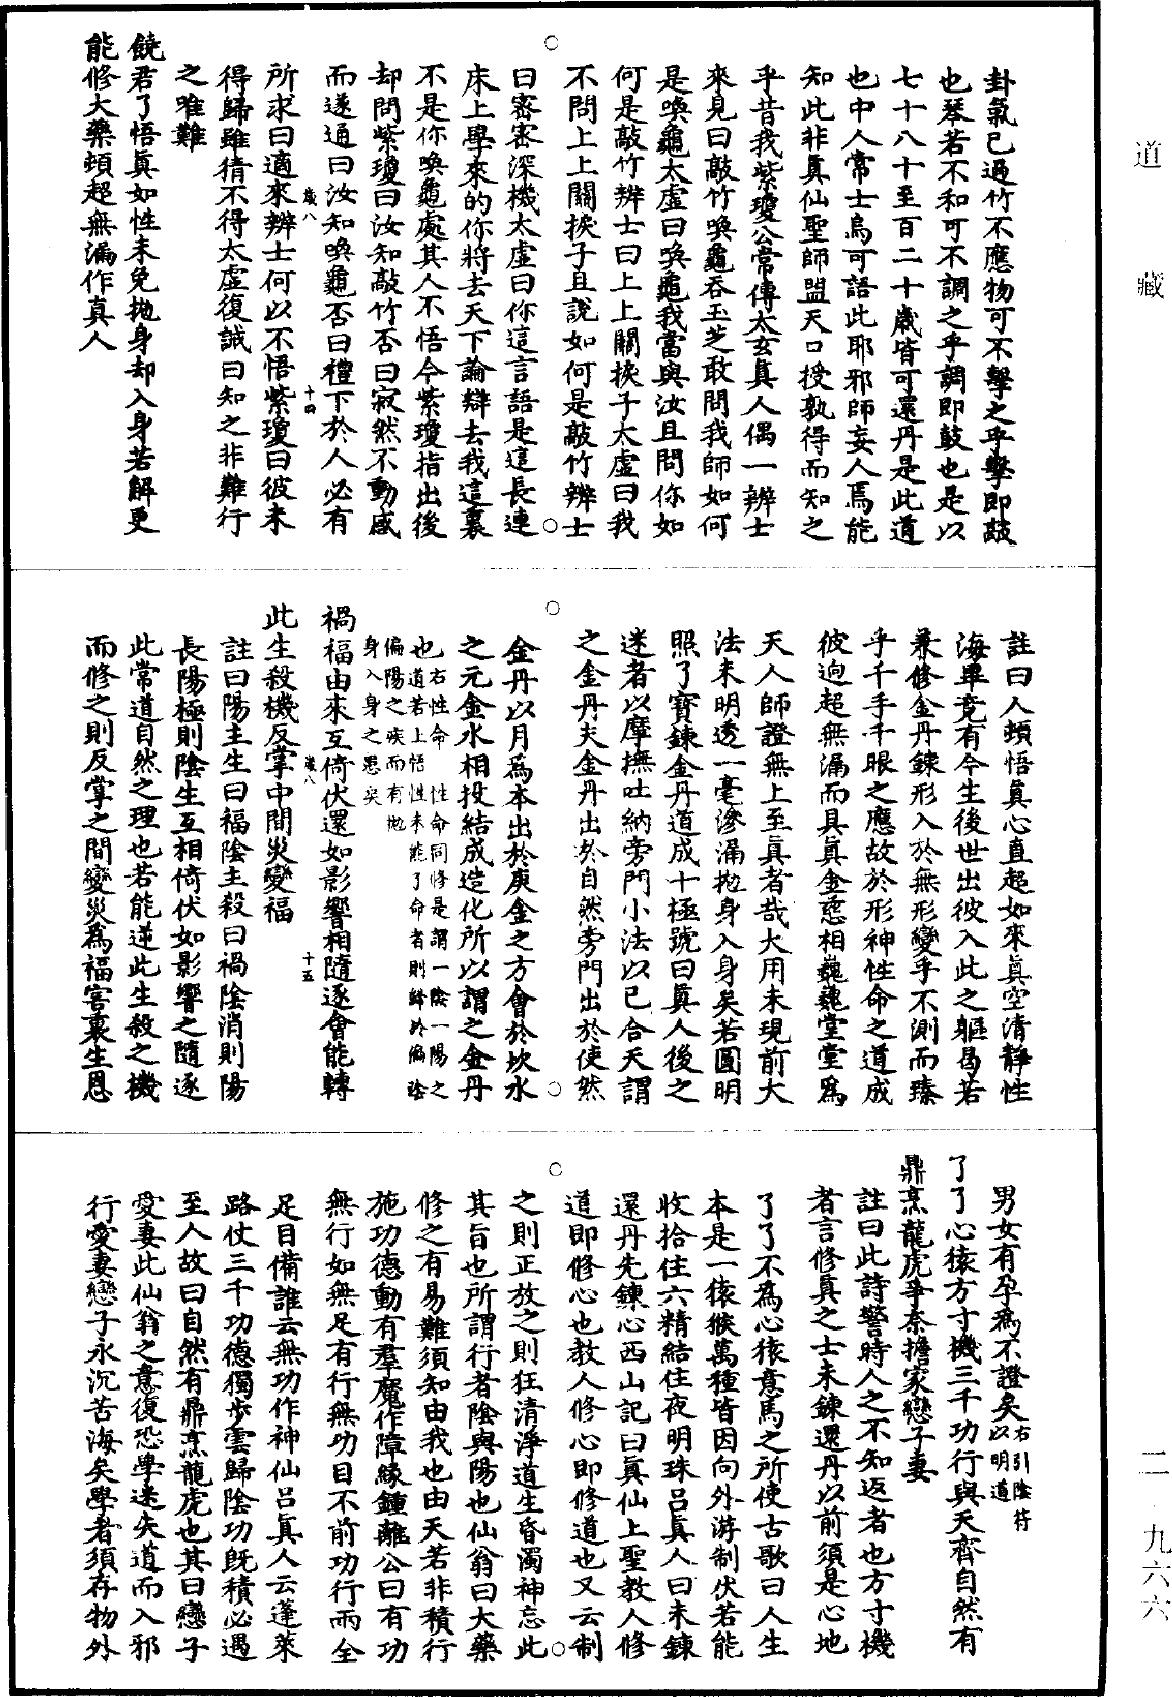 卦氣已過竹不應物可不擊之乎擊即鼓
也琴若不和可不調之乎調即鼓也是以
七十八十至百二十歲皆可還丹是此道
也中人常士烏可語此耶邪師妄人焉能
知此非真仙聖師盟天口授孰得而知之
乎昔我紫瓊公常傳太玄真人偶一辨士
來見曰敲竹喚龜吞玉芝敢問我師如何
是喚龜太虛曰喚龜我當與汝且問你如
何是敲竹辨士曰上上關捩子太虛曰我
不問上上關捩子且說如何是敲竹辨士
曰密密深機太虛曰你這言語是這長連
床上學來的你將去天下論辯去我這裏
不是你喚龜處其人不悟今紫瓊指出後
却問紫瓊曰汝知敲竹否曰寂然不動感
而遂通曰汝知喚龜否曰禮下於人必有
歲八 十四
所求曰適來辨士何以不悟紫瓊曰彼未
得歸雖猜不得太虛復誡曰知之非難行
之唯難
饒君了悟真如性未免拋身却入身若解更
能修大藥頓超無漏作真人
註曰人頓悟真心直超如來真空清靜性
海畢竟有今生後世出彼入此之軀曷若
兼修金丹鍊形入於無形變乎不測而臻
乎千手千眼之應故於形神性命之道成
彼迥超無漏而具真金慤相巍巍堂堂為
天人師證無上至真者哉大用未現前大
法未明透一毫滲漏拋身入身矣若圓明
照了寶鍊金丹道成十極號曰真人後之
迷者以摩撫吐納旁門小法以已合天謂
之金丹夫金丹出於自然旁門出於使然
金丹以月為本出於庚金之方會於坎水
之元金水相投結成造化所以謂之金丹
也右性命 性命同修是謂一陰一陽之
道若上悟性未能了命者則歸於偏陰
偏陽之疾而有拋
身入身之患矣
禍福由來互倚伏還如影響相隨逐會能轉
歲八 十五
此生殺機反掌中間災變福
註曰陽主生曰福陰主殺曰禍陰消則陽
長陽極則陰生互相倚伏如影響之隨逐
此常道自然之理也若能逆此生殺之機
而修之則反掌之間變災為福害裏生恩
男女有孕為不證矣右引陰符
以明道
了了心猿方寸機三千功行與天齊自然有
鼎烹龍虎爭奈擔家戀子妻
註曰此詩警時人之不知返者也方寸機
者言修真之士未鍊還丹以前須是心地
了了不為心猿意馬之所使古歌曰人生
本是一猿猴萬種皆因向外游制伏若能
收拾住六精結住夜明珠呂真人曰未鍊
還丹先鍊心西山記曰真仙上聖教人修
道即修心也教人修心即修道也又云制
之則正放之則狂清淨道生昏濁神忘此
其旨也所謂行者陰與陽也仙翁曰大藥
修之有易難須知由我也由天若非積行
施功德動有羣魔作障緣鍾離公曰有功
無行如無足有行無功目不前功行兩全
足目備誰云無功作神仙呂真人云蓬萊
路仗三千功德獨步雲歸陰功既積必遇
至人故曰自然有鼎烹龍虎也其曰戀子
愛妻此仙翁之意復恐學迷失道而入邪
行愛妻戀子永沉苦海矣學者須存物外
道藏
二 九六六